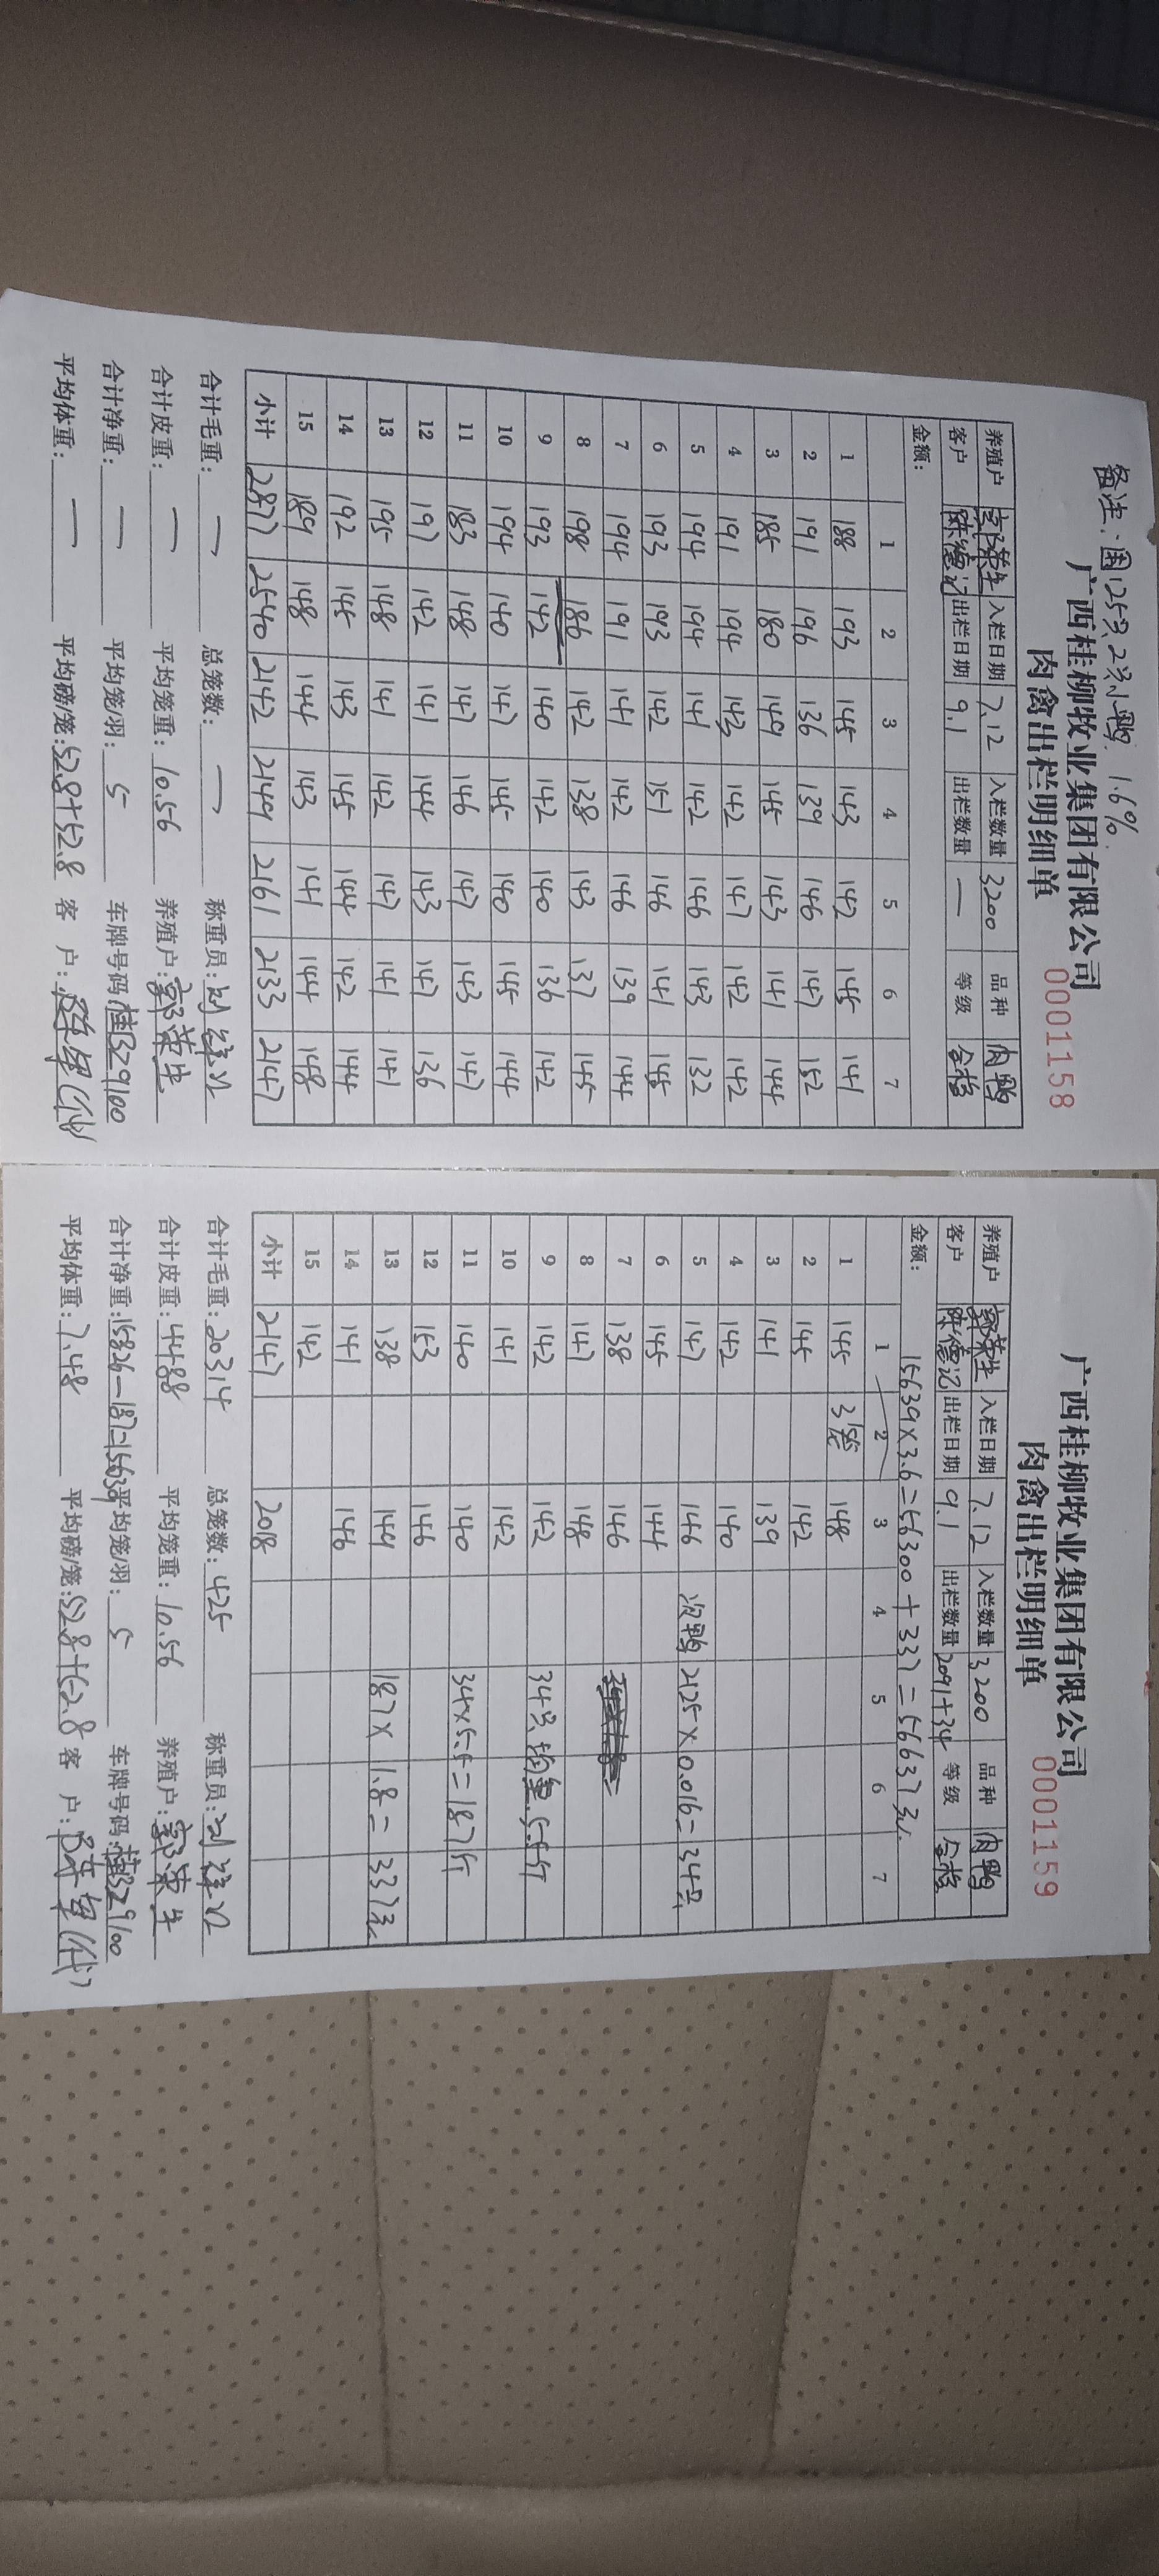 备注:围125只,2只小鸭 1.6%
广西桂柳牧业集团有限公司
肉禽出栏明细单
0001158
养殖户 荣生 入栏日期 7.12 入栏数量 3200 品种 肉鸭
客户 陈德记 出栏日期 9.1 出栏数量 — 等级 合格
金额:
1 2 3 4 5 6 7
1 188 193 145 143 142 145 141
2 191 196 136 139 146 147 152
3 185 180 149 145 143 141 144
4 191 194 143 142 147 142 142
5 194 194 141 142 146 143 132
6 193 193 142 151 146 141 145
7 194 191 141 142 146 139 144
8 198 186 142 138 143 137 145
9 193 142 140 142 140 136 142
10 194 140 147 145 140 145 144
11 183 148 147 146 147 143 147
12 197 142 141 144 143 147 136
13 195 148 141 142 147 141 141
14 192 145 143 145 144 142 144
15 189 148 144 143 141 144 148
小计 2877 2540 2142 2149 2161 2133 2147
合计毛重: — 总笼数: — 称重员:
合计皮重: — 平均笼重: 10.56 养殖户: 荣生
合计净重: — 平均笼/羽: 5 车牌号码: 桂B29100
平均体重: — 平均磅/笼: 52.8+52.8 客 户: (代)
广西桂柳牧业集团有限公司
肉禽出栏明细单
0001159
养殖户 荣生 入栏日期 7.12 入栏数量 3200 品种 肉鸭
客户 陈德记 出栏日期 9.1 出栏数量 2091+34 等级 合格
金额: 15639×3.6=56300+337=56637元
1 2 3 4 5 6 7
1 145 3笼 148
2 145 142
3 141 139
4 142 140
5 147 146 次鸭 2125×0.016=34只
6 145 144
7 138 146
8 147 148
9 142 142 34只 均重 5.5斤
10 141 142
11 140 140 34×5.5=187斤
12 153 146
13 138 149 187×1.8=337元
14 141 146
15 142
小计 2147 2018
合计毛重: 20314 总笼数: 425 称重员:
合计皮重: 4488 平均笼重: 10.56 养殖户: 荣生
合计净重: 15826-187=15639 平均笼/羽: 5 车牌号码: 桂B29100
平均体重: 7.48 平均磅/笼: 52.8+52.8 客 户: (代)